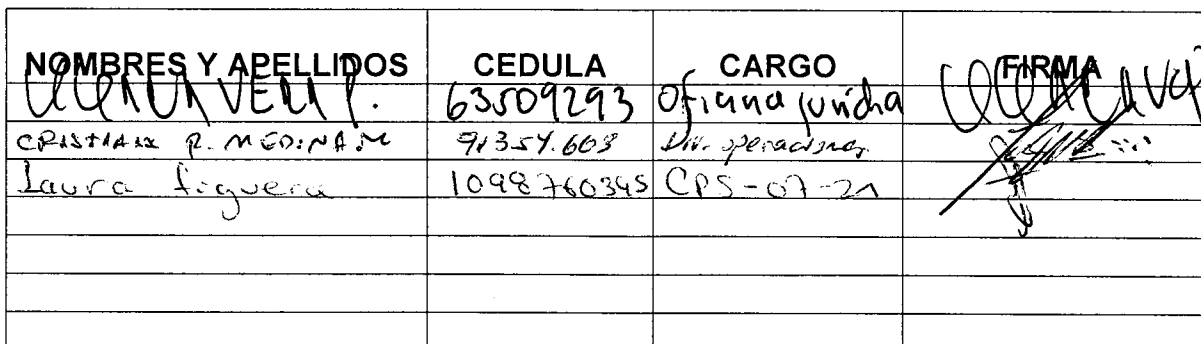 NOMBRES Y APELLIDOS CEDULA CARGO FIRMA
VERA P. 63509293 Oficina juridica
CRISTIAN R. MEDINA M 91354.603 Div. operaciones
Laura figuera 1098760345 CPS-07-21